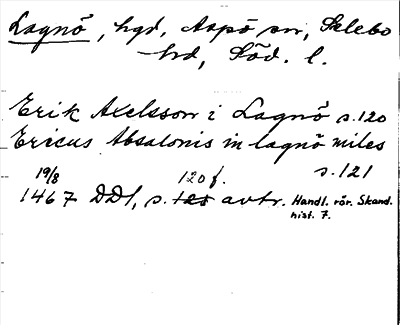 Lagnö, hgd, Aspö sn, Selebo
hd, Söd. l.
Erik Axelsson i Lagnö s. 120
Ericus Absalonis in lagnö miles
s. 121
19/8 120 f.
1467 DD1, s. 120 avtr. Handl. rör. Skand.
hist. 7.